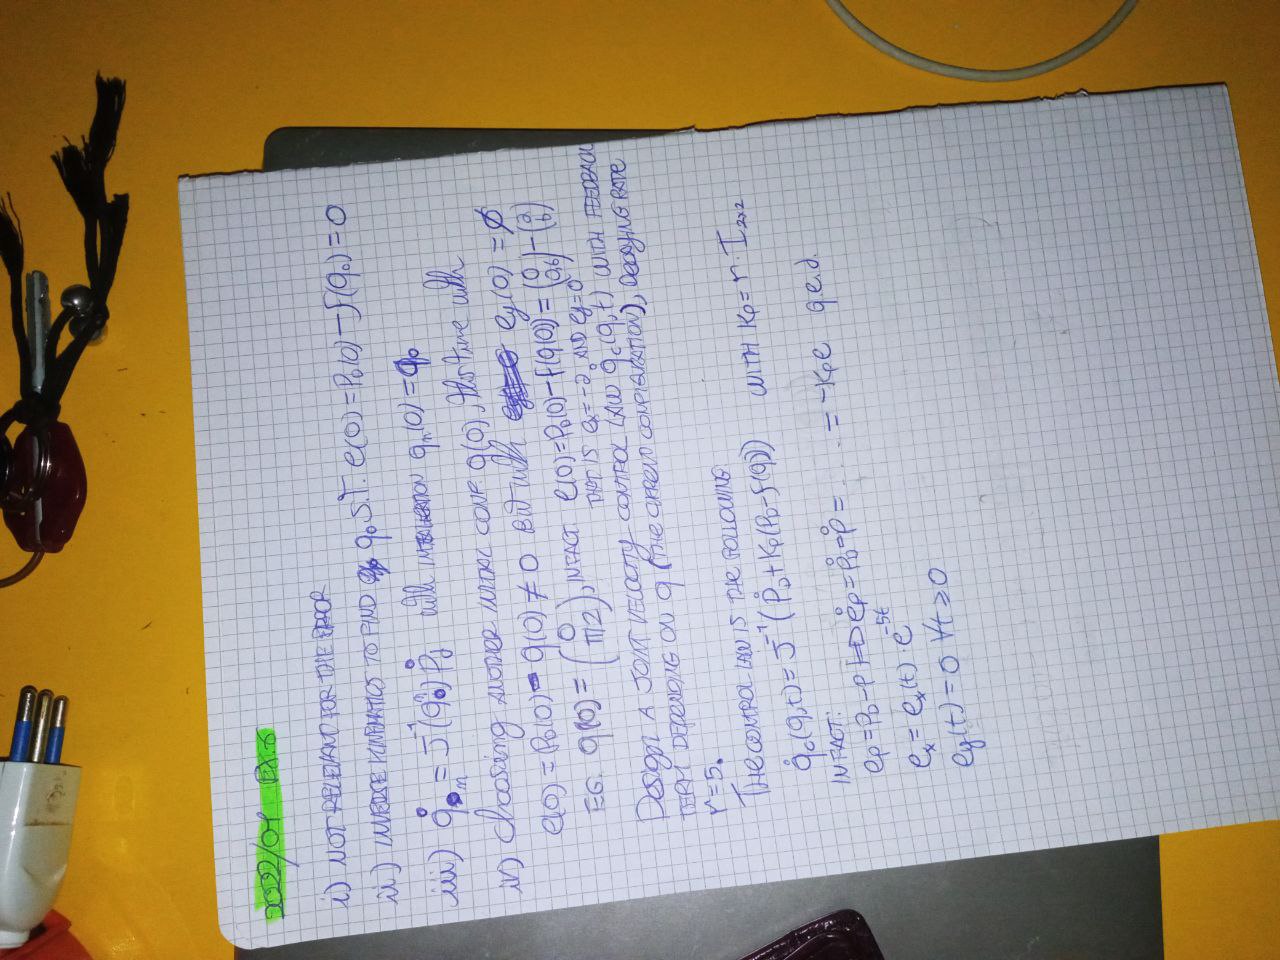 2022/01 EX.6
i) NOT RELEVANT FOR THE ERROR
ii) INVERSE KINEMATICS TO FIND q₀ S.T. e(0) = P_D(0) - f(q₀) = 0
iii) q̇_n = J⁻¹(q_n) Ṗ_D with INTEGRATION q_n(0) = q₀
iv) Choosing ANOTHER INITIAL CONF. q(0), this time with
e(0) = P_D(0) - q(0) ≠ 0 BUT with e_y(0) = 0
EG. q(0) = (0 π/2), INFACT e(0) = P_D(0) - f(q(0)) = (0 0,6) - (2 6)
THAT IS e_x = -2 AND e_y = 0
Design A JOINT VELOCITY CONTROL LAW q̇_c(q,t) WITH FEEDBACK
TERM DEPENDING ON q (the current CONFIGURATION), Decaying RATE
r = 5.
The CONTROL LAW IS THE FOLLOWING
q̇_c(q,t) = J⁻¹(Ṗ_D + K_P(P_D - f(q))) WITH K_P = r · I_2x2
INFACT:
e_P = P_D - P |=> ė_P = Ṗ_D - Ṗ = ..... = -K_P e q.e.d.
e_x = e_x(t) · e^-5t
e_y(t) = 0 ∀t ≥ 0